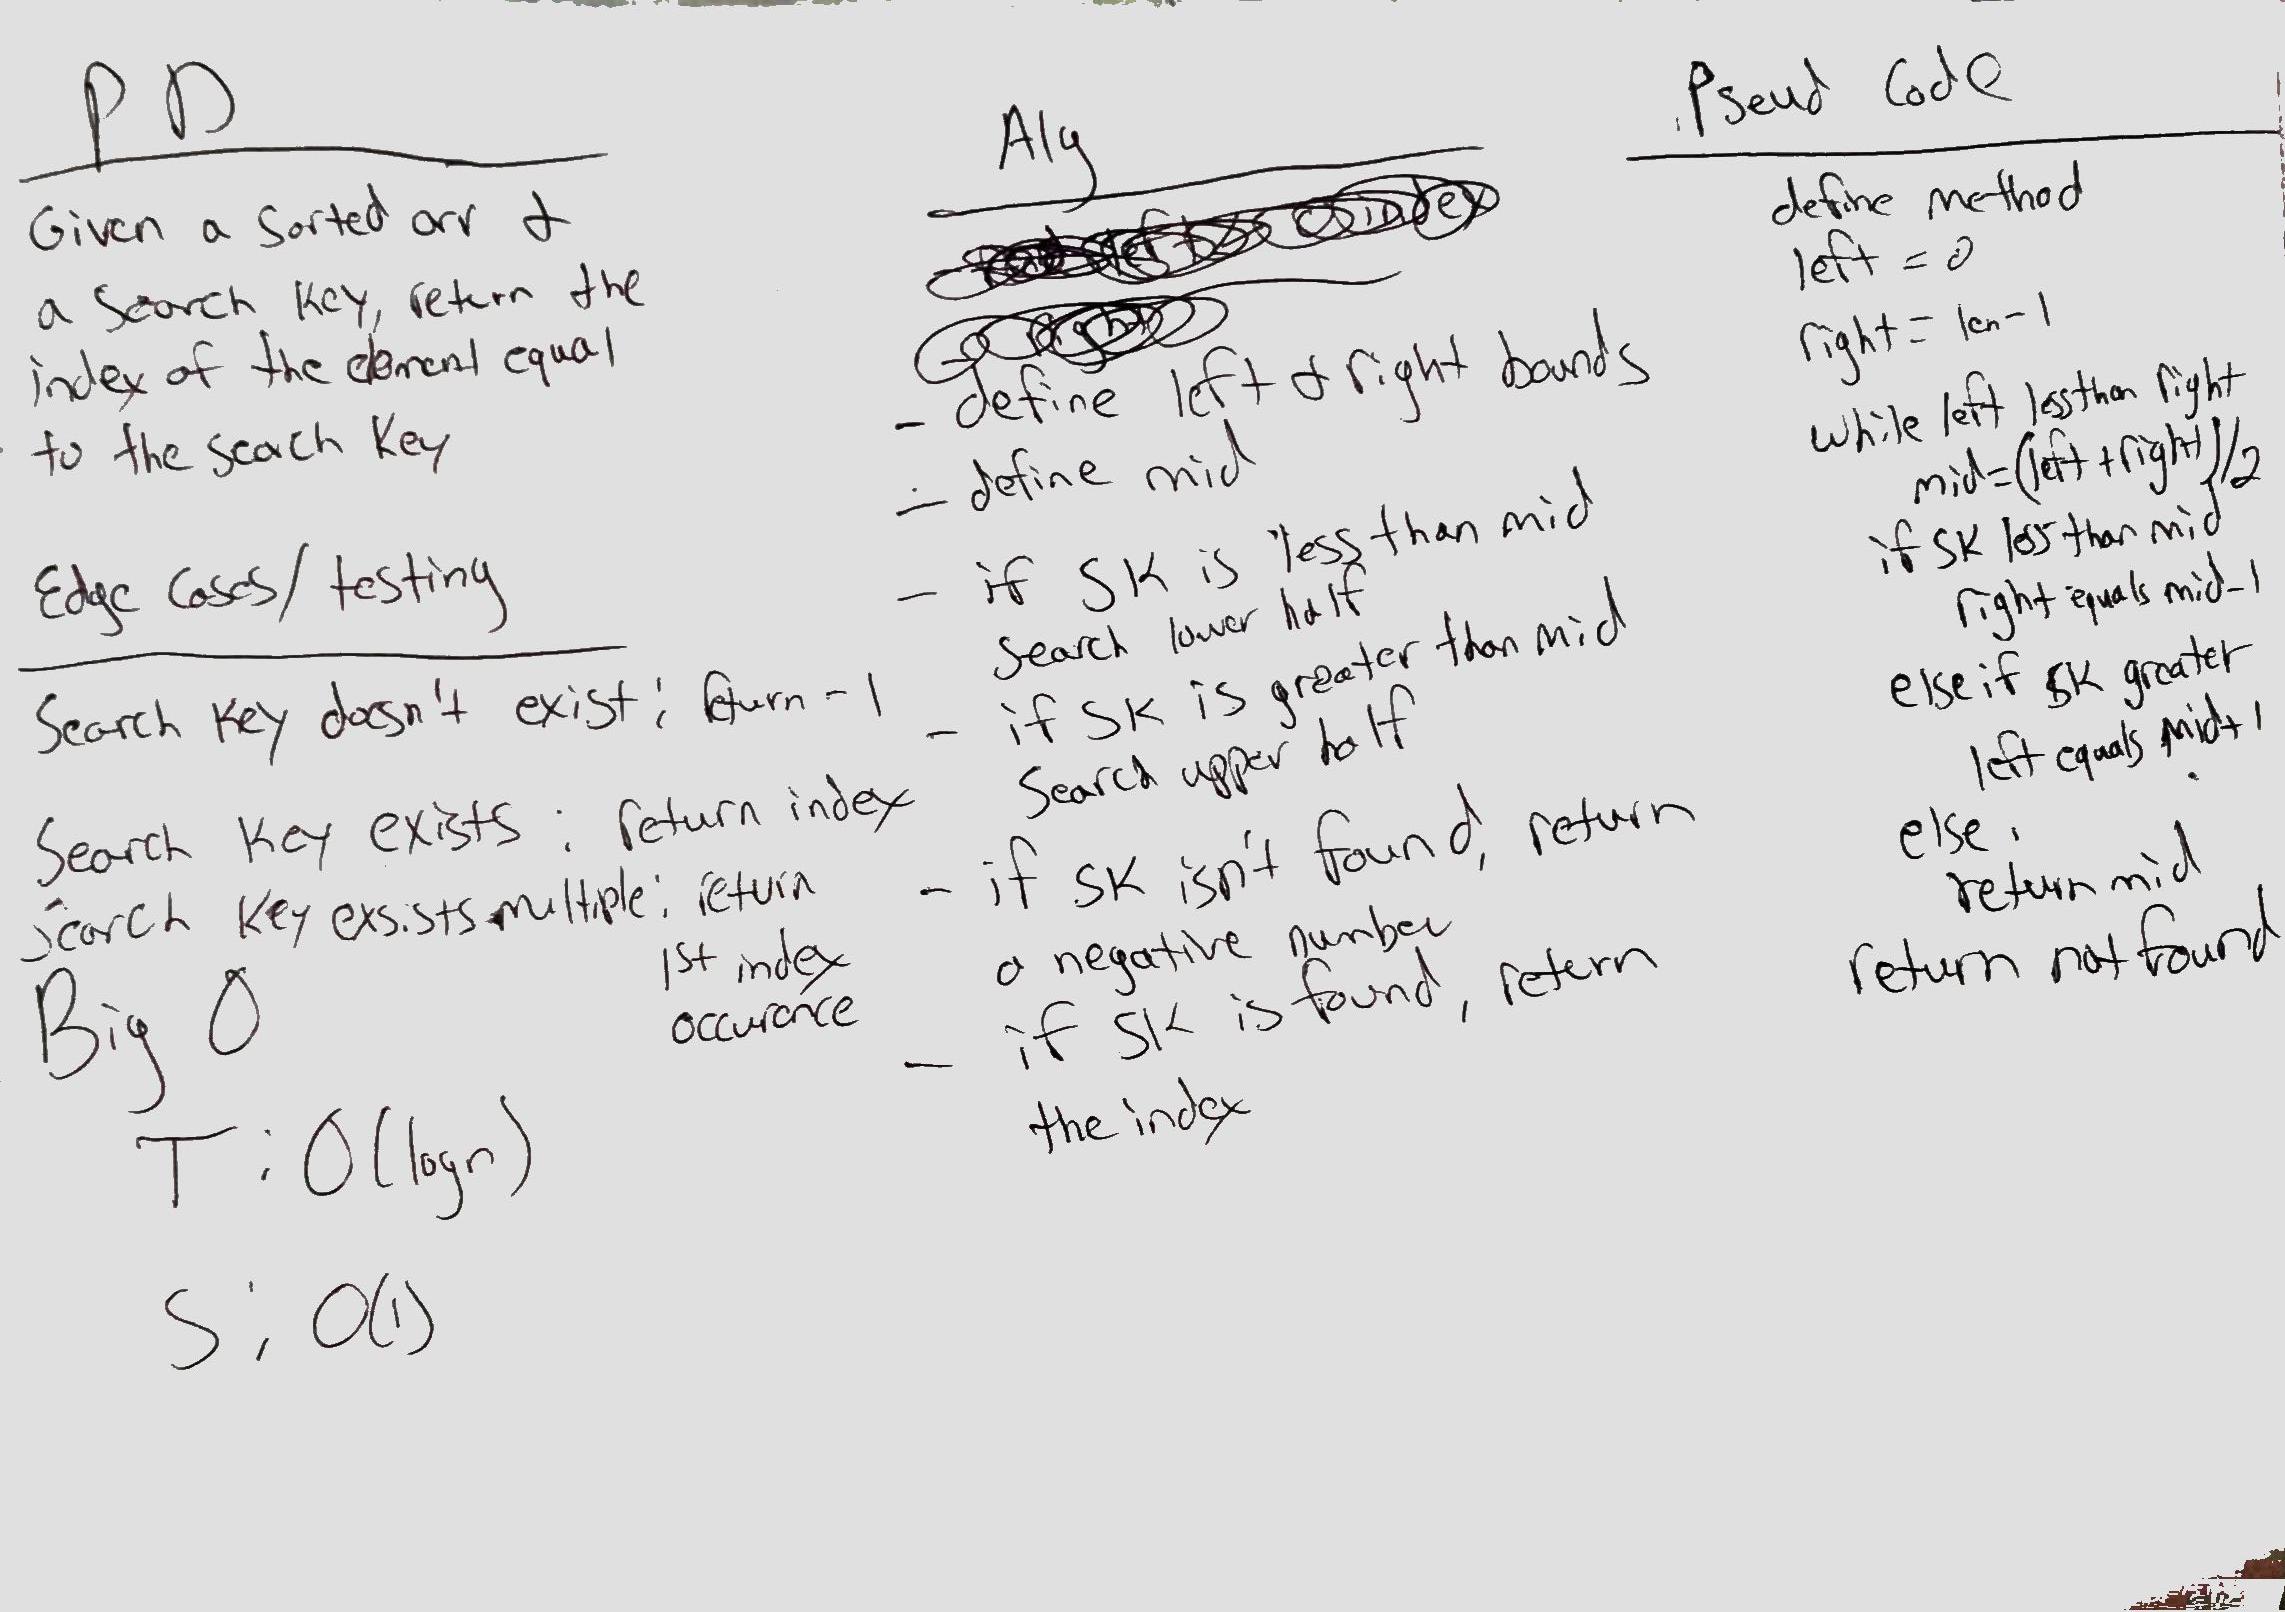 PD
Given a sorted arr &
a search key, return the
index of the element equal
to the search key
Edge Cases/testing
Search key doesn't exist: return -1
Search key exists: return index
Search key exsists multiple: return
1st index
occurance
Big O
T: O(logn)
S: O(1)
Alg
left index
right
- define left & right bounds
- define mid
- if SK is less than mid
search lower half
- if SK is greater than mid
Search upper half
- if SK isn't found, return
a negative number
- if SK is found, return
the index
Pseud Code
define method
left = 0
right = len-1
while left less than right
mid=(left+right)/2
if SK less than mid
right equals mid-1
else if SK greater
left equals mid+1
else
return mid
return not found